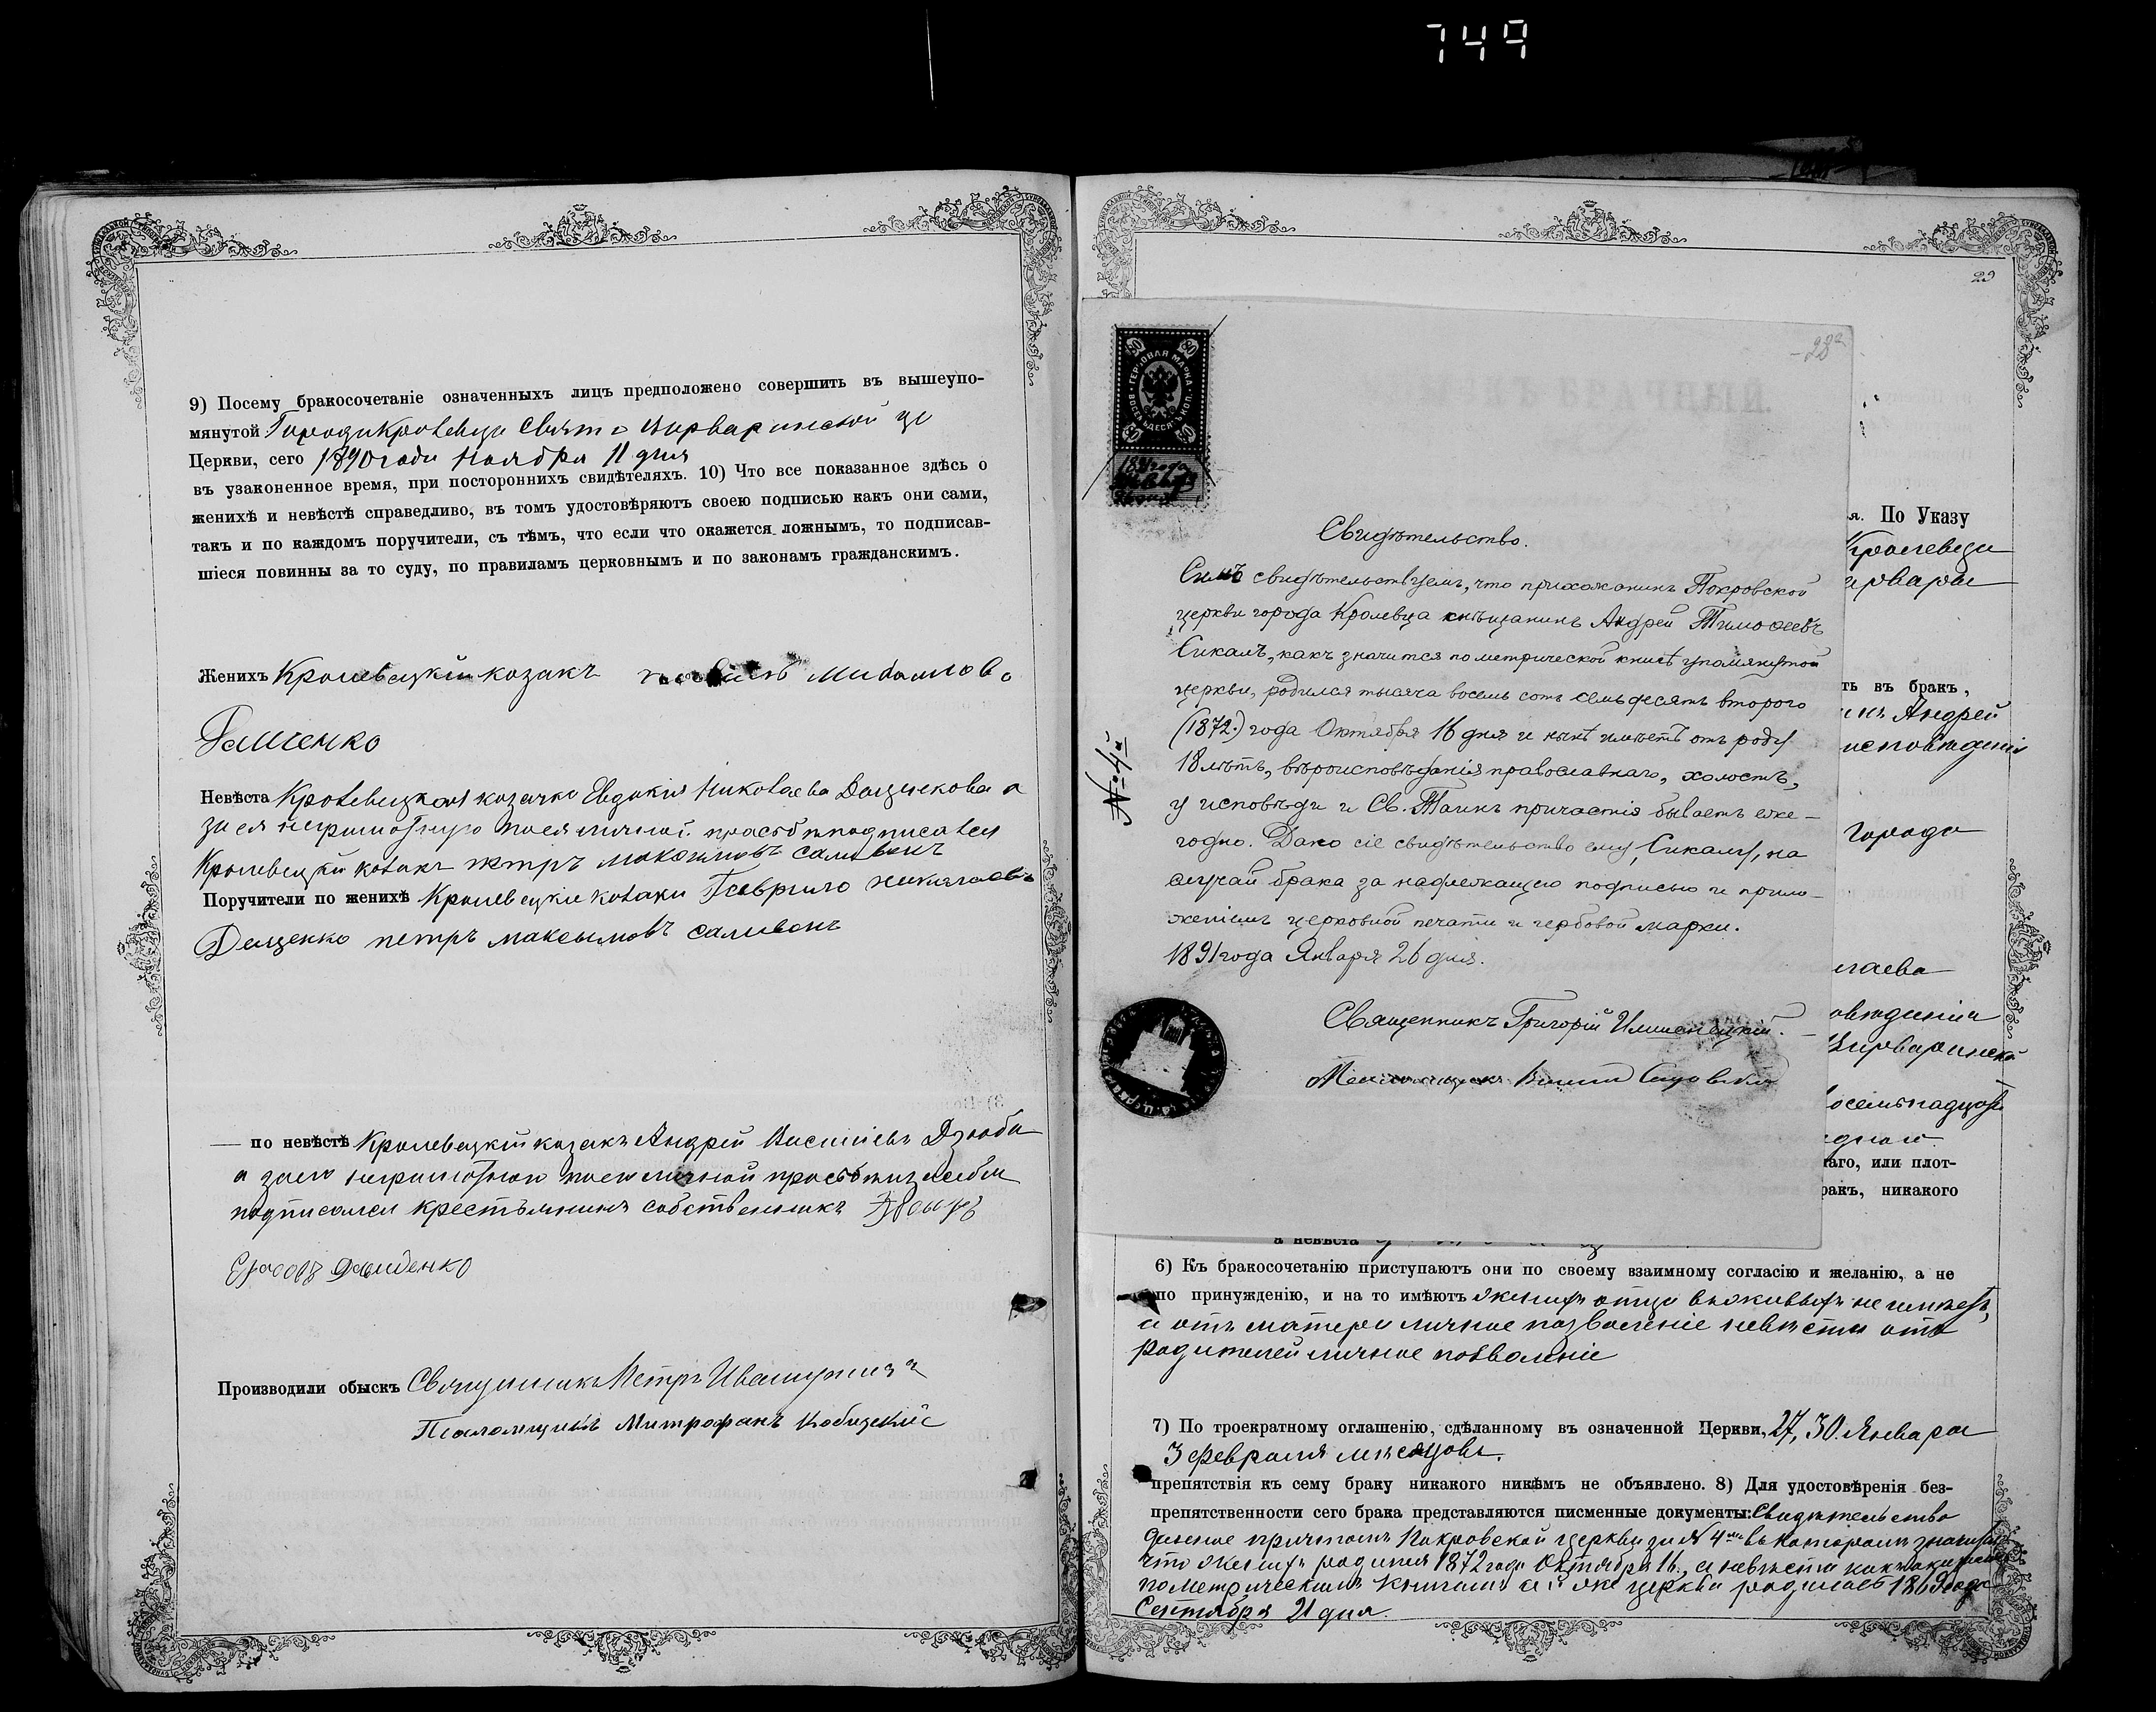 749
9) Посему бракосочетаніе означенныхъ лицъ предположено совершить въ вышеупо-
мянутой Города Кролевца Свято Варваринской це
Церкви, сего 1890 года Ноября 11 дня
въ узаконенное время, при постороннихъ свидѣтеляхъ. 10) Что все показанное здѣсь о
женихѣ и невѣстѣ справедливо, въ томъ удостовѣряютъ своею подписью какъ они сами,
такъ и по каждомъ поручители, съ тѣмъ, что если что окажется ложнымъ, то подписав-
шіеся повинны за то суду, по правиламъ церковнымъ и по законамъ гражданскимъ.
Женихъ Кролевецкій козакъ
Невѣста Кролевецкая козачка Евдокія Николаева Дащенкова а
за ея неграмотную по ея личной просьбѣ подписался
Кролевецкій козакъ петръ максимовъ саливонъ
Поручители по женихѣ Кролевецкіе козаки Гаврило николаевъ
Дащенко петръ максымовъ саливонъ
— по невѣстѣ Кролевецкій козакъ Андрей Васильевъ Дзюба
а за его неграмотного по его личной просьбѣ
подписался крестьянинъ собственникъ
Давиденко
Производили обыскъ Священникъ Петръ Иващенко
Псаломщикъ Митрофанъ Кобицкій
29
28а
ГЕРБОВАЯ МАРКА
ВОСЕМЬДЕСЯТЪ КОП.
80 80
80 80
1891 года
Января
26 дня
№ 4й
Свидѣтельство.
Симъ свидѣтельствуемъ, что прихожанинъ Покровской
церкви города Кролевца мѣщанинъ Андрей Тимоѳеевъ
Сикалъ, какъ значится по метрической книгѣ упомянутой
церкви, родился тысяча восемь сотъ семьдесятъ второго
(1872) года Октября 16 дня и нынѣ имѣетъ отъ роду
18 лѣтъ, вѣроисповѣданія православнаго, холостъ,
у исповѣди и Св. Таинъ причастія бываетъ еже-
годно. Дано сіе свидѣтельство ему, Сикалу, на
случай брака за надлежащею подписью и прило-
женіемъ церковной печати и гербовой марки.
1891 года Января 26 дня.
Священникъ Григорій
я. По Указу
Кролевца
ть въ бракъ,
Андрей
исповѣданія
города
лаева
аго, или плот-
ракъ, никакого
а невѣста
6) Къ бракосочетанію приступаютъ они по своему взаимному согласію и желанію, а не
по принужденію, и на то имѣютъ женихъ отца въ живыхъ не имѣетъ,
а отъ матери личное позволеніе невѣста отъ
родителей личное позволеніе
7) По троекратному оглашенію, сдѣланному въ означенной Церкви, 27, 30 Января
3 февраля мѣсяцовъ.
препятствія къ сему браку никакого никѣмъ не объявлено. 8) Для удостовѣренія без-
препятственности сего брака представляются писменные документы: Свидѣтельство
данное причтомъ Покровской церкви за № 4мъ въ которомъ значится
что женихъ родился 1872 года Октября 16, а невѣста
по метрическимъ книгамъ сей же церкви родилась 1869 года
Сентября 21 дня.